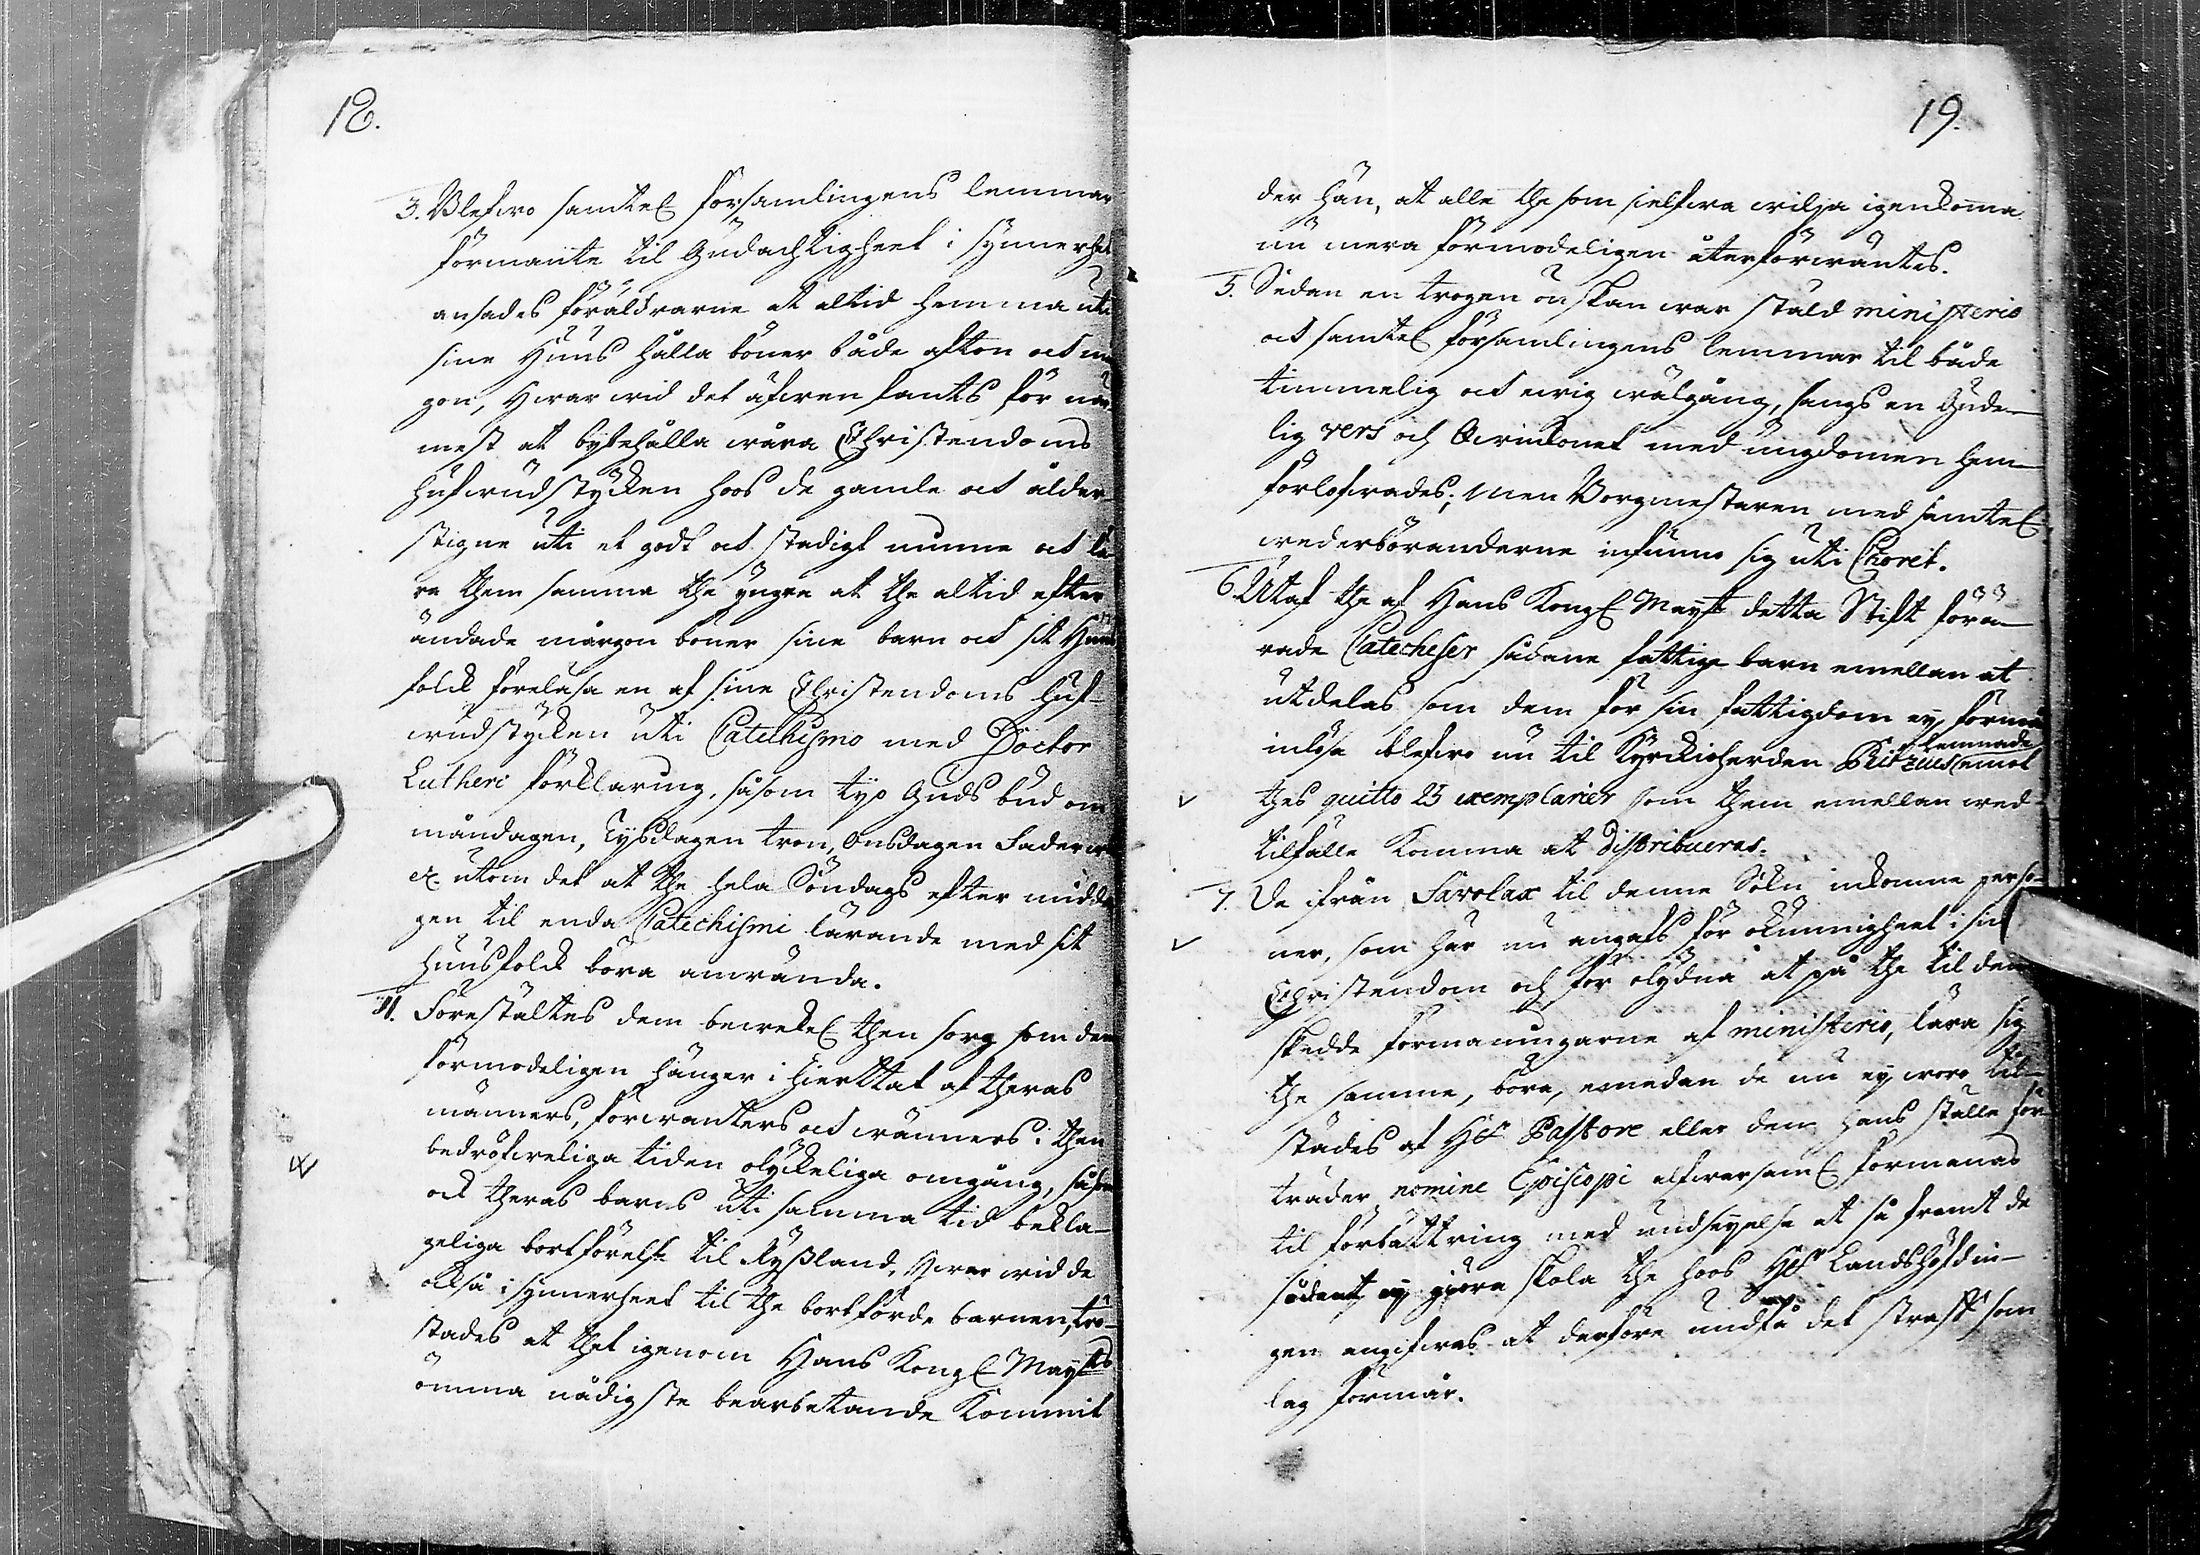 18.
3. Blefwo samtel. församlingens lemmar
förmante til Gudachtigheet i synnerhet
ansades föräldrarne at altid hemma uti
sine Huus hålla böner både afton och mor
gon, hwar wid det äfwen fants för nö
mest at bybehålla wåra Christendoms
hufwudstycken hoos de gamle och ålder
stigne uti et godt och stadigt minne och lä
ra them samma the yngre at the altid efter
ändade morgon böner sine barn och sit Huus
folck föreläsa en af sine Christendoms huf-
wudstycken uti Catechismo med Doctor
Lutheri förklaring, såsom tyo Guds bud om
måndagen, Tysdagen tron, Onsdagen Fader wår
etc. utom det at the hela Söndags efter midda
gen til enda Catechismi lärande med sit
huusfolck böra anwända.
4. Förestältes dem bewekel. then sorg som dem
förmodeligen hänger i hierttat af theras
männers, förwanters och wänners i then
bedröfweliga tiden olyckeliga omgång, såsom
och theras barns uti samma tid bekla-
geliga bortförelse til Ryßland, hwar wid de
också i synnerheet til the bortförde barnen, trö-
stades at thet igenom Hans Kongl. Mayts
ömma nådigste bearbetande kommit
19.
der hän, at alle the som sielfwa wilja igenkoma
nu mera förmodeligen återförwäntes.
5. Sedan en trogen önskan war stäld ministerio
och samtel. församlingens lemmar til både
timmelig och ewig wälgång, sangs en Gude-
lig vers och Qwinkönet med ungdomen hem-
förlofwades; men Borgmestaren med samtel.
wederböranderne infunno sig uti Choret.
6. Utaf the af Hans Kongl. Mayt detta Stift förä-
rade Catecheser sådane fattige barn emellan at
utdelas som dem för sin fattigdom ey förmå
inlösa blefwo nu til Kyrckioherden lemnade emot
thes quitto 25 exemplarier som them emellan wed
tilfälle komma at distribueras.
7. De ifrån Savolax til denne Sokn inkomne perso-
ner, som här nu angafs för okunnigheet i sin
Christendom och för olydna at på the til dem
skedde förmaningarne af ministerio, lära sig
the samme, böra, emedan de nu ey woro til-
städes af Hr Pastore eller den hans ställe för
träder nomine Episcopi alfwarsaml. förmanas
til förbättring med undseyelse at så framt de
sådant ey giöra skola the hoos Hr Landshöfdin-
gen angifwas at derföre undfå det straff som
lag förmår.